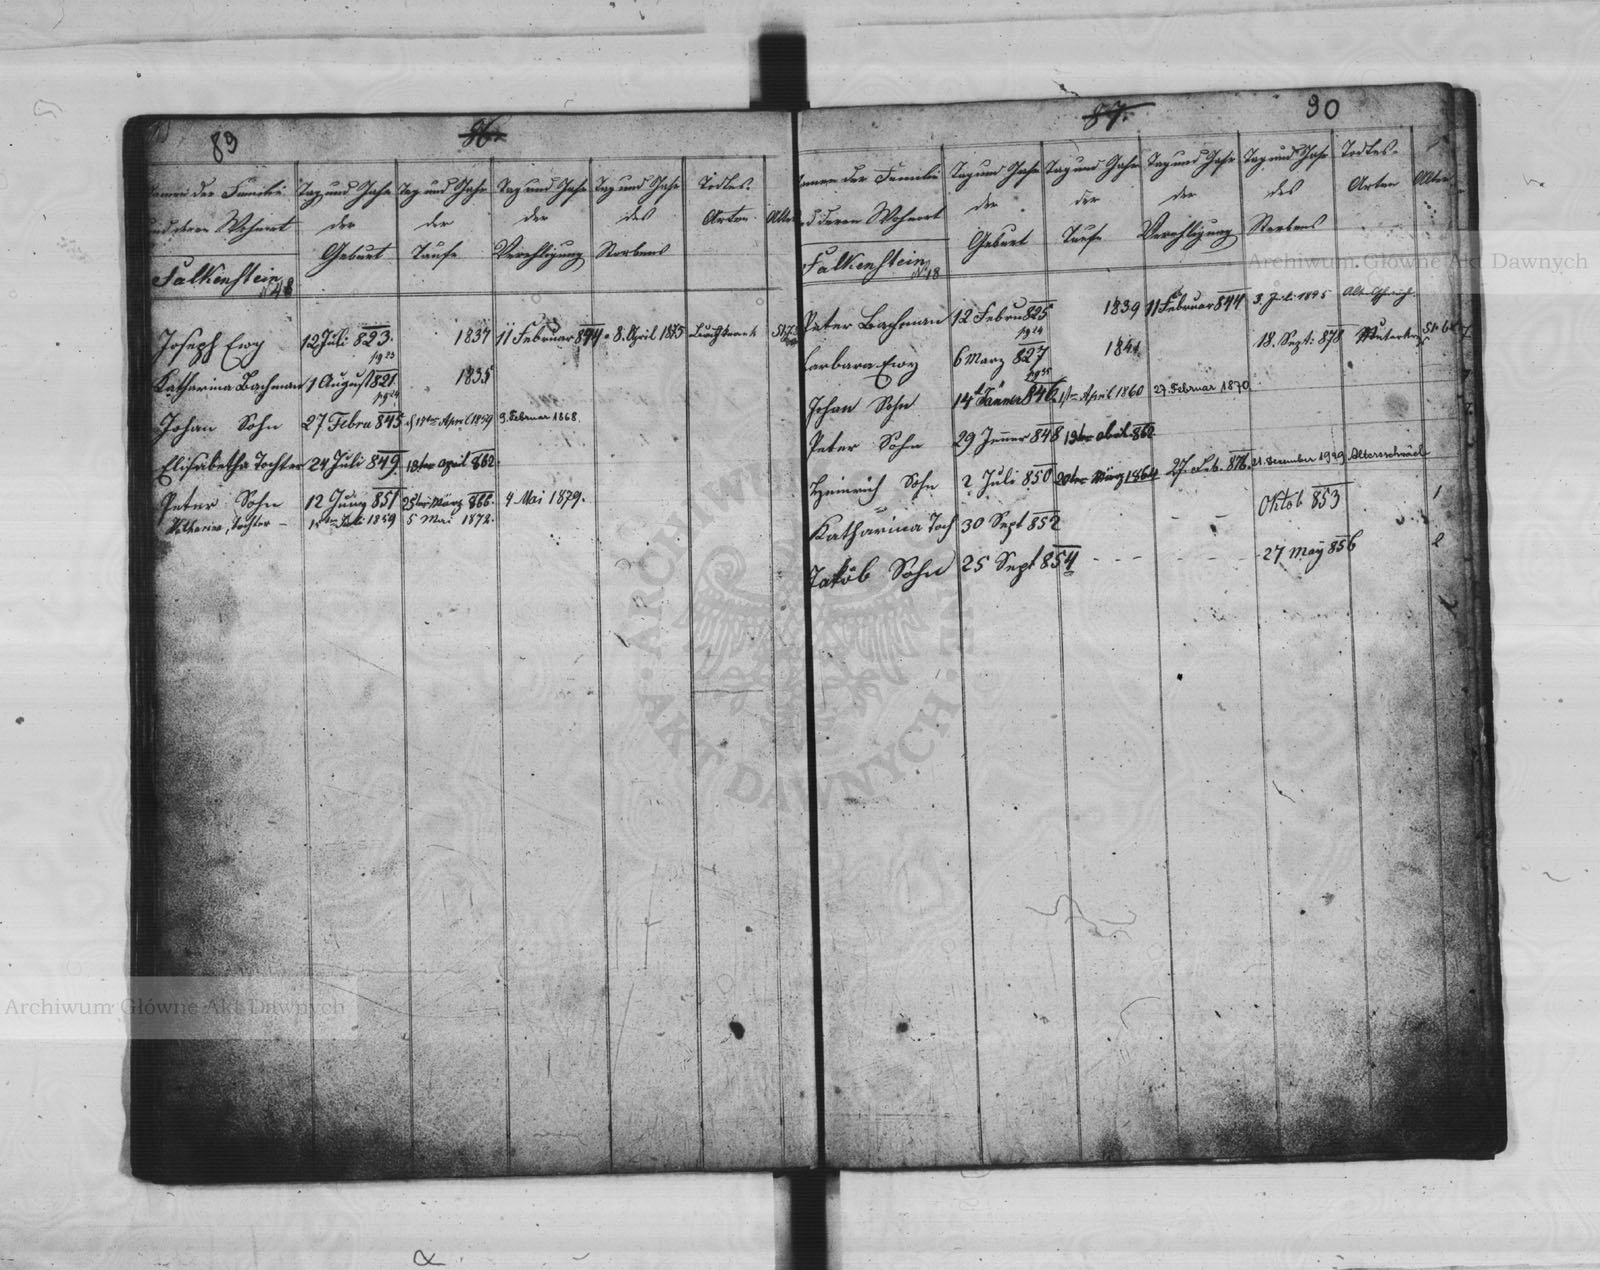 89
86.
Namen der Familie Tag und Jahr Tag und Jahr Tag und Jahr Tag und Jahr Todtes-
und deren Wohnort der der der des Arten Alter
Geburt Taufe Verehligung Sterbens
Falkenstein
No 48
Joseph Ewy 12 Juli 823. 1837 11 Februar 844 8. April 1875
pg 23
Katharina Bachman 1 August 821 1835
pg 24
Johan Sohn 27 Febru 845 April 1859 9. Februar 1868.
Elisabetha Tochter 24 Juli 849 18ten April 862
Peter Sohn 12 Juny 851 25ten März 866. 4 Mai 1879.
Tochter 1859 5 Mai 1872.
87.
90
Namen der Familie Tag und Jahr Tag und Jahr Tag und Jahr Tag und Jahr Todtes-
und deren Wohnort der der der des Arten Alter
Geburt Taufe Verehligung Sterbens
Falkenstein
No 18
Peter Bachman 12 Febru 825 1839 11 Februar 844 3. 1895
pg 24
Barbara Ewy 6 Marz 827 1841 18. Sept: 878
Johan Sohn 14 Jänner 846 1ten April 1860 27. Februar 1870
Peter Sohn 29 Jenner 848 13ten April 862
Heinrich Sohn 2 Juli 850 20ten März 1864 27. Feb. 876. 21. Dezember 1929 Altersschwäche
Katharina Toch 30 Sept 852 - - Oktob 853 1
Jakob Sohn 25 Sept 854 - - - - - - 27 May 856 2
Archiwum Główne Akt Dawnych
ARCHIWUM GŁÓWNE · AKT DAWNYCH ·
Archiwum Główne Akt Dawnych